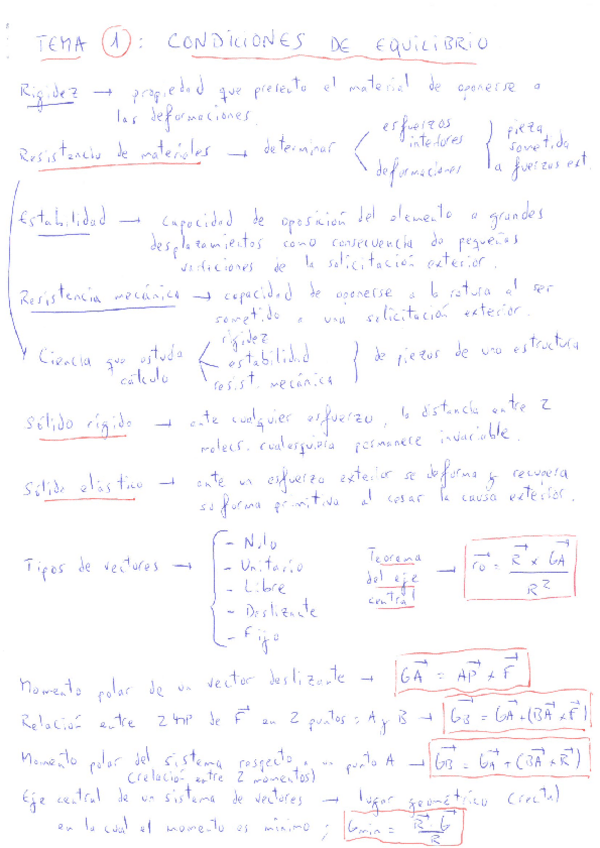 TEMA 1 : CONDICIONES DE EQUILIBRIO
Rigidez → propiedad que presenta el material de oponerse a
las deformaciones.
Resistencia de materiales → determinar < esfuerzos interiores / deformaciones } pieza sometida a fuerzas ext.
Estabilidad → capacidad de oposición del elemento a grandes
desplazamientos como consecuencia de pequeñas
variaciones de la solicitación exterior.
Resistencia mecánica → capacidad de oponerse a la rotura al ser
sometido a una solicitación exterior.
Ciencia que estudia cálculo < rigidez / estabilidad / resist. mecánica } de piezas de una estructura
Sólido rígido → ante cualquier esfuerzo, la distancia entre 2
molecs. cualesquiera permanece invariable.
Sólido elástico → ante un esfuerzo exterior se deforma y recupera
su forma primitiva al cesar la causa exterior.
Tipos de vectores →
- Nulo
- Unitario
- Libre
- Deslizante
- Fijo
Teorema del eje central → r₀ = R x GA / R²
Momento polar de un vector deslizante → GA = AP x F
Relación entre 2 MP de F en 2 puntos: A y B → GB = GA + (BA x F)
Momento polar del sistema respecto a un punto A → GB = GA + (BA x R)
(relación entre 2 momentos)
Eje central de un sistema de vectores → lugar geométrico (recta)
en la cual el momento es mínimo ; Gmin = R · G / R